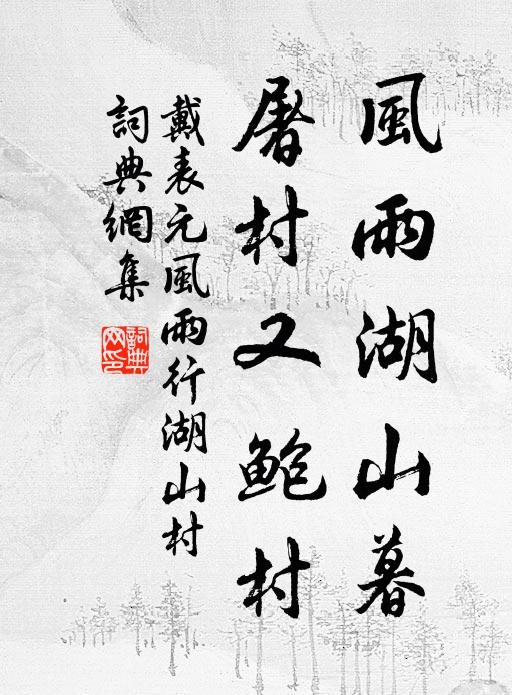 風雨湖山暮
屠村又鮑村
戴表元風雨行湖山村
詞典網集
詞典
網印